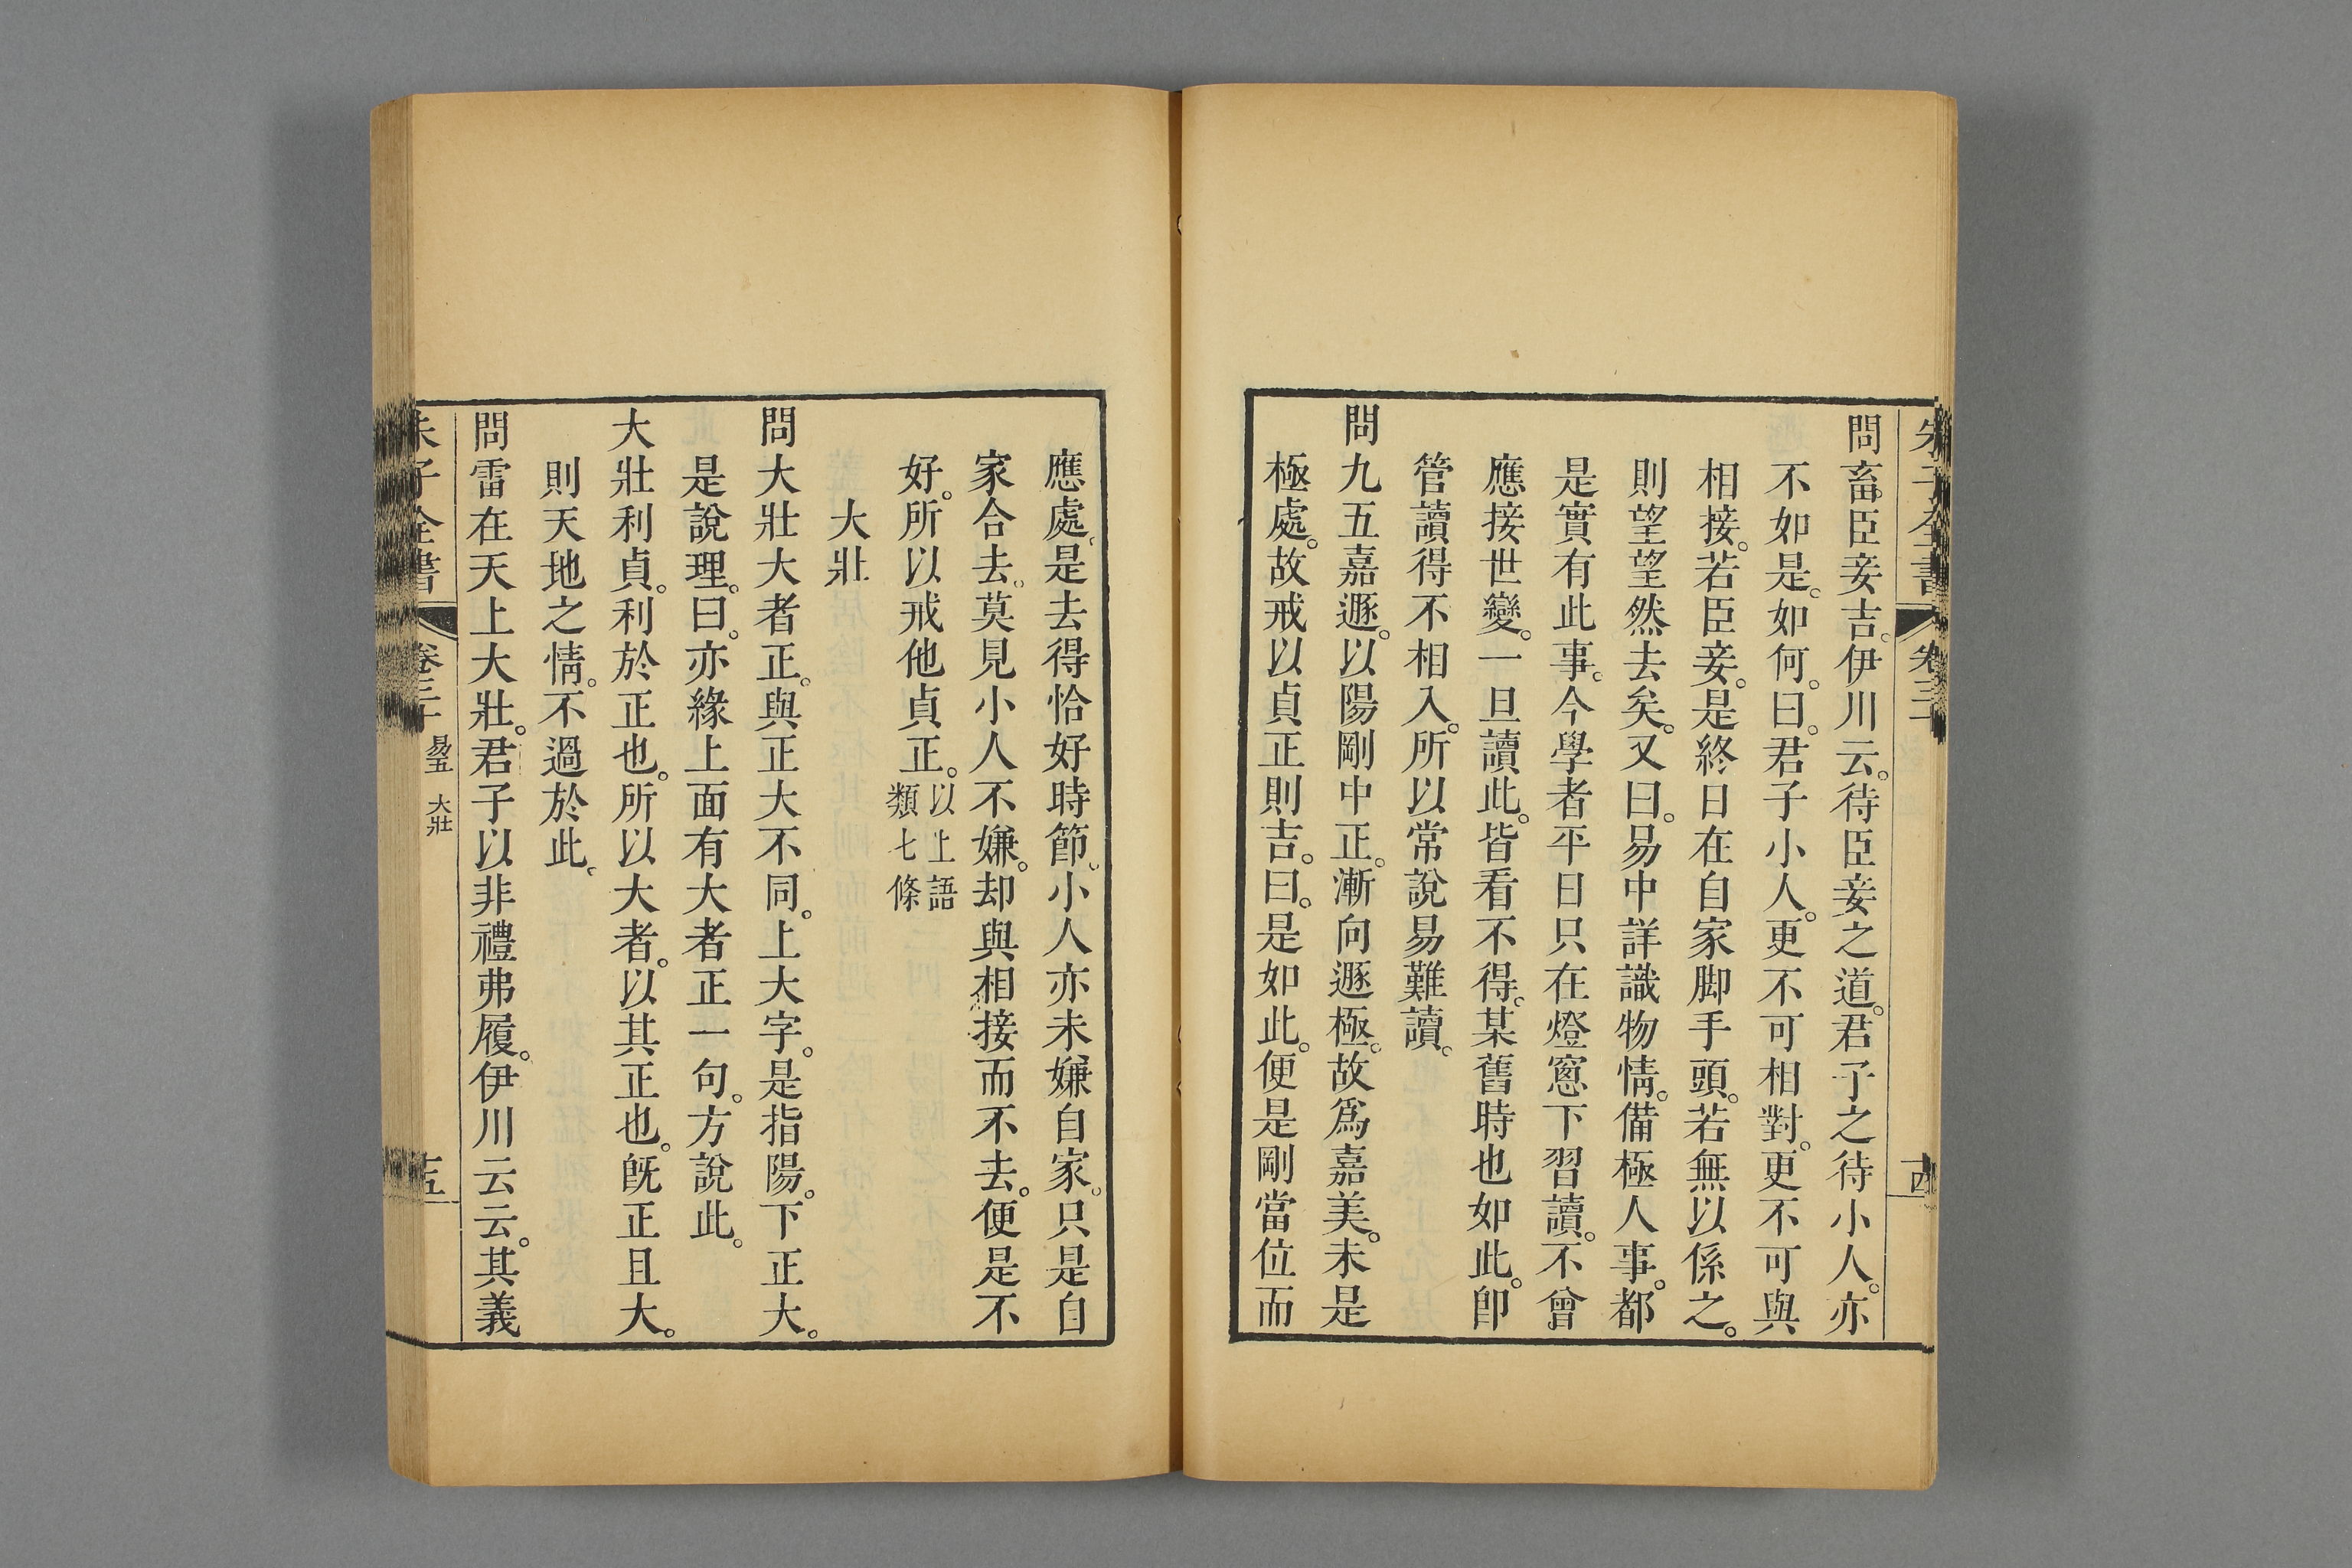 朱子全書 卷三十
十四
問畜臣妾吉。伊川云。待臣妾之道。君子之待小人。亦
不如是。如何。曰。君子小人。更不可相對。更不可與
相接。若臣妾。是終日在自家脚手頭。若無以係之。
則望望然去矣。又曰。易中詳識物情。備極人事。都
是實有此事。今學者平日只在燈窻下習讀。不曾
應接世變。一旦讀此。皆看不得。某舊時也如此。卽
管讀得不相入。所以常說易難讀。
問九五嘉遯。以陽剛中正。漸向遯極。故爲嘉美。未是
極處。故戒以貞正則吉。曰。是如此。便是剛當位而
應處。是去得恰好時節。小人亦未嫌自家。只是自
家合去。莫見小人不嫌。却與相接而不去。便是不
好。所以戒他貞正。以上語
類七條
大壯
問大壯大者正。與正大不同。上大字。是指陽。下正大。
是說理。曰。亦緣上面有大者正一句。方說此。
大壯利貞。利於正也。所以大者。以其正也。旣正且大。
則天地之情。不過於此。
問雷在天上大壯。君子以非禮弗履。伊川云云。其義
朱子全書 卷三十 易五 大壯
十五